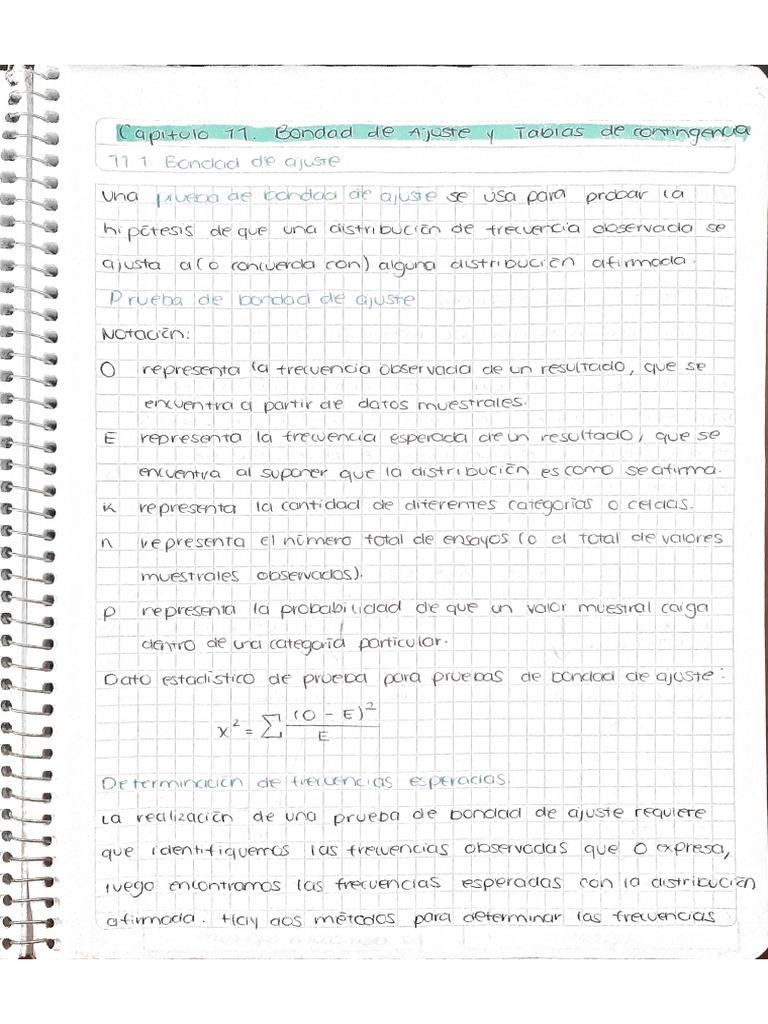 Capitulo 11. Bondad de Ajuste y Tablas de contingencia
11.1 Bondad de ajuste
Una prueba de bondad de ajuste se usa para probar la
hipótesis de que una distribución de frecuencia observada se
ajusta a (o concuerda con) alguna distribución afirmada.
Prueba de bondad de ajuste
Notación:
O representa la frecuencia observada de un resultado, que se
encuentra a partir de datos muestrales.
E representa la frecuencia esperada de un resultado, que se
encuentra al suponer que la distribución es como se afirma.
K representa la cantidad de diferentes categorías o celdas.
n representa el número total de ensayos (o el total de valores
muestrales observados).
p representa la probabilidad de que un valor muestral caiga
dentro de una categoría particular.
Dato estadístico de prueba para pruebas de bondad de ajuste:
x² = ∑ (O - E)² / E
Determinación de frecuencias esperadas.
La realización de una prueba de bondad de ajuste requiere
que identifiquemos las frecuencias observadas que O expresa,
luego encontramos las frecuencias esperadas con la distribución
afirmada. Hay dos métodos para determinar las frecuencias